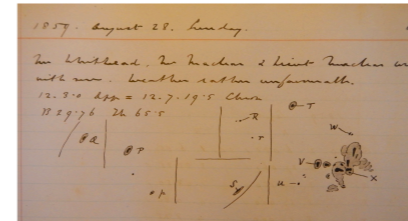 1859. August 28. Sunday.
Mr Whitehead, Mr Maclear & Lieut Maclear
with me. Weather rather unfavourable.
12.3.0 App = 12.7.19.5 Chron
B 29.76 Th 65.5
R
T
W
Q
P
r
V
S
u
X
p